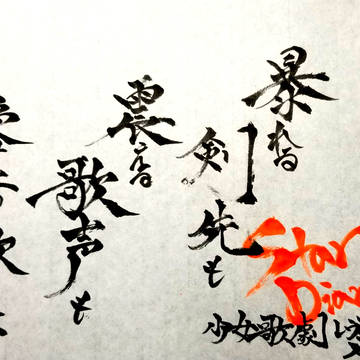 暴れる
剣先も
震える
歌声も
Star
Dia
少女歌劇レ